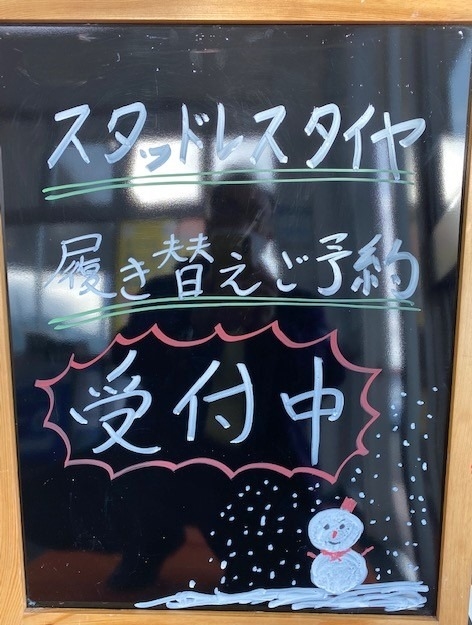 スタッドレスタイヤ
履き替えご予約
受付中